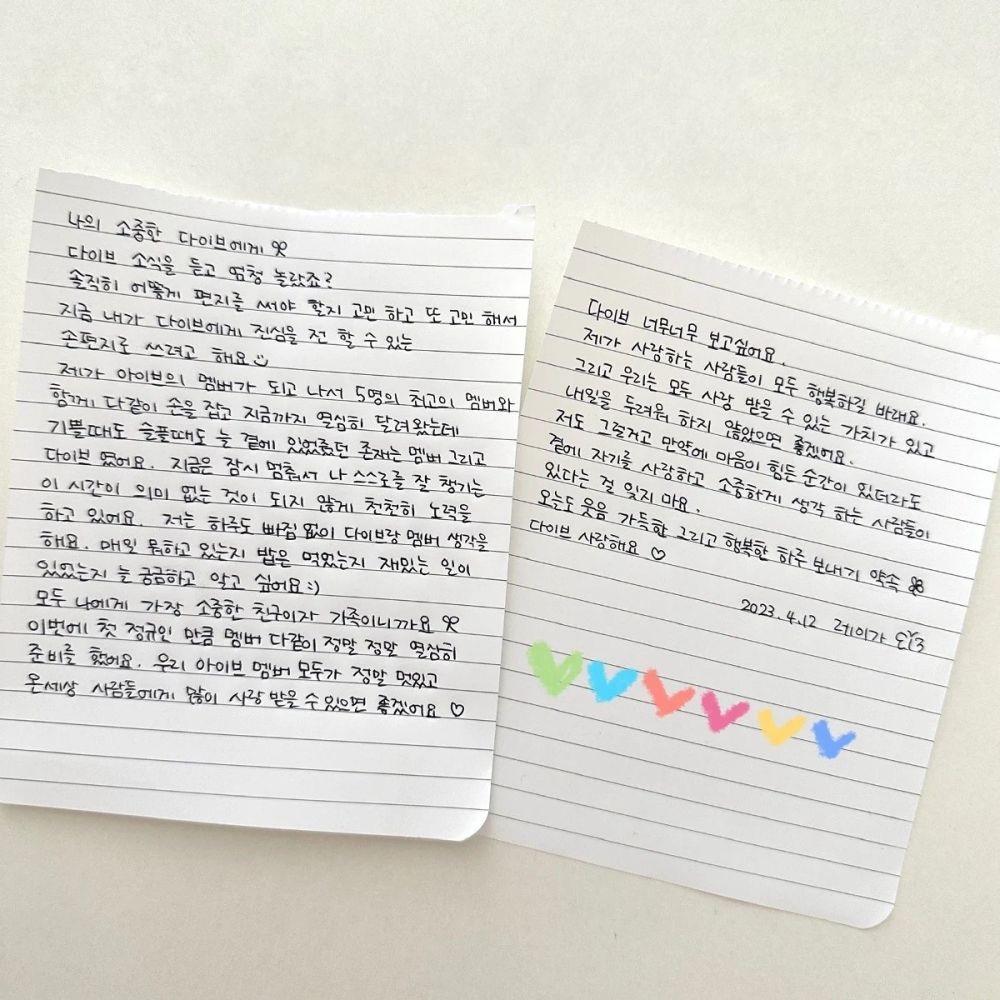 나의 소중한 다이브에게
다이브 소식을 듣고 엄청 놀랐죠?
솔직히 어떻게 편지를 써야 할지 고민 하고 또 고민 해서
지금 내가 다이브에게 진심을 전 할 수 있는
손편지로 쓰려고 해요
제가 아이브의 멤버가 되고 나서 5명의 최고의 멤버와
함께 다같이 손을 잡고 지금까지 열심히 달려왔는데
기쁠때도 슬플때도 늘 곁에 있었줬던 존재는 멤버 그리고
다이브 였어요. 지금은 잠시 멈춰서 나 스스로를 잘 챙기는
이 시간이 의미 없는 것이 되지 않게 천천히 노력을
하고 있어요. 저는 하루도 빠짐 없이 다이브랑 멤버 생각을
해요. 매일 뭐하고 있는지 밥은 먹었는지 재밌는 일이
있었는지 늘 궁금하고 알고 싶어요:)
모두 나에게 가장 소중한 친구이자 가족이니까요
이번에 첫 정규인 만큼 멤버 다같이 정말 정말 열심히
준비를 했어요. 우리 아이브 멤버 모두가 정말 멋있고
온세상 사람들에게 많이 사랑 받을 수 있으면 좋겠어요 ♡
다이브 너무너무 보고싶어요.
제가 사랑하는 사람들이 모두 행복하길 바래요.
그리고 우리는 모두 사랑 받을 수 있는 가치가 있고
내일을 두려워 하지 않았으면 좋겠어요.
저도 그럴거고 만약에 마음이 힘든 순간이 있더라도
곁에 자기를 사랑하고 소중하게 생각 하는 사람들이
있다는 걸 잊지 마요.
오늘도 웃음 가득한 그리고 행복한 하루 보내기 약속
다이브 사랑해요 ♡
2023.4.12 레이가